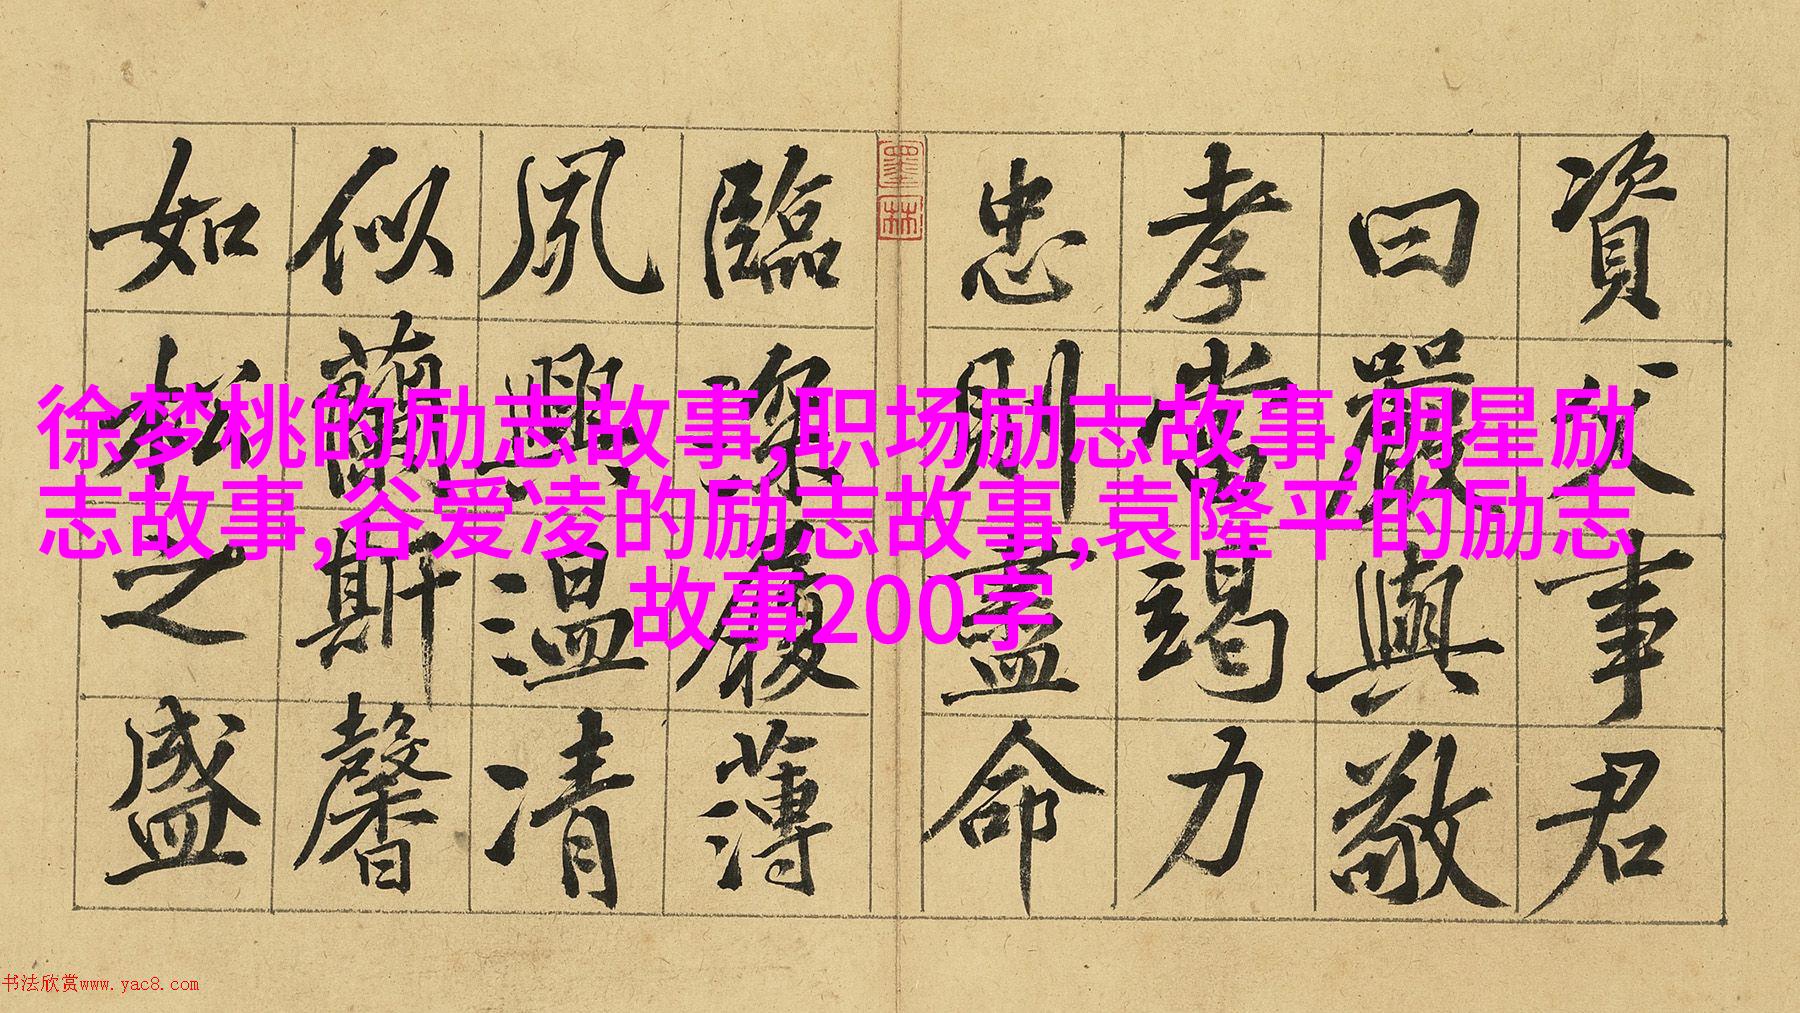 徐梦桃的励志故事,职场励志故事,明星励
志故事,谷爱凌的励志故事,袁隆平的励志
故事200字
資父事君
曰嚴與敬
孝當竭力
忠則盡命
墨林
臨深履薄
夙興溫凊
似蘭斯馨
如松之盛
书法欣赏www.yac8.com